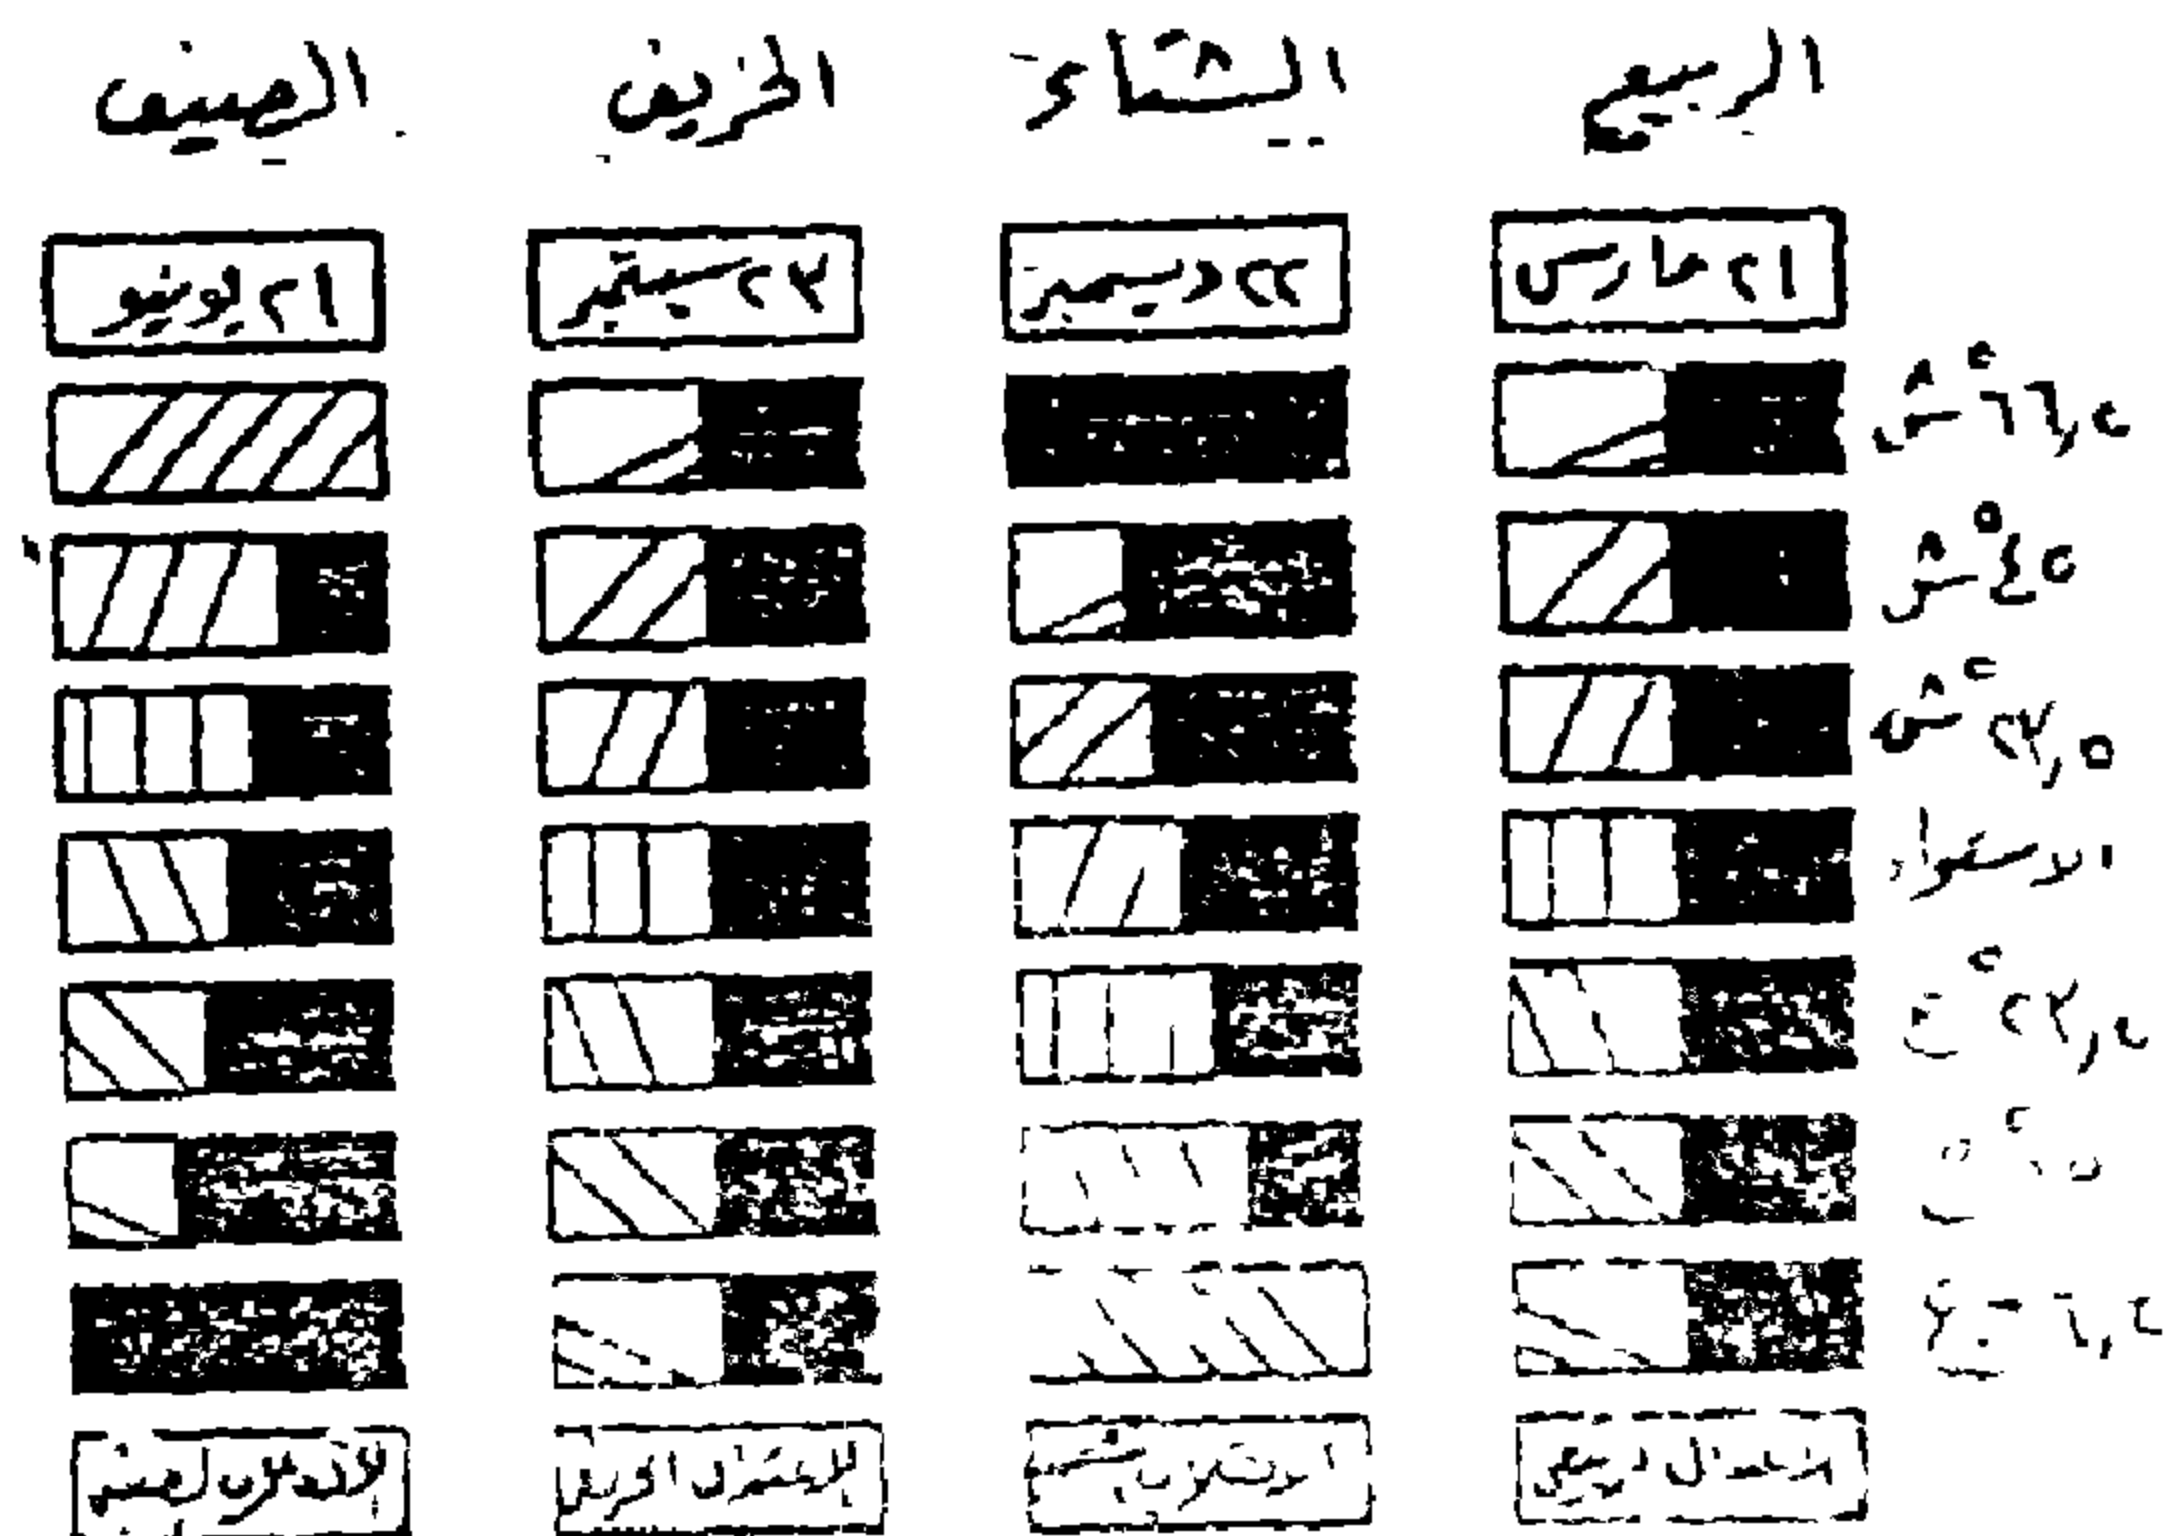 الربيع الشتاء الخريف الصيف
٢١ مارس ٢٢ ديسمبر ٢٣ سبتمبر ٢١ يونيو
٦٦,٥° ش
٤٥° ش
٢٣,٥° ش
الاستواء
٢٣,٥° ج
الاعتدال الربيعي الانقلاب الاعتدال الخريفي الانقلاب الصيفي